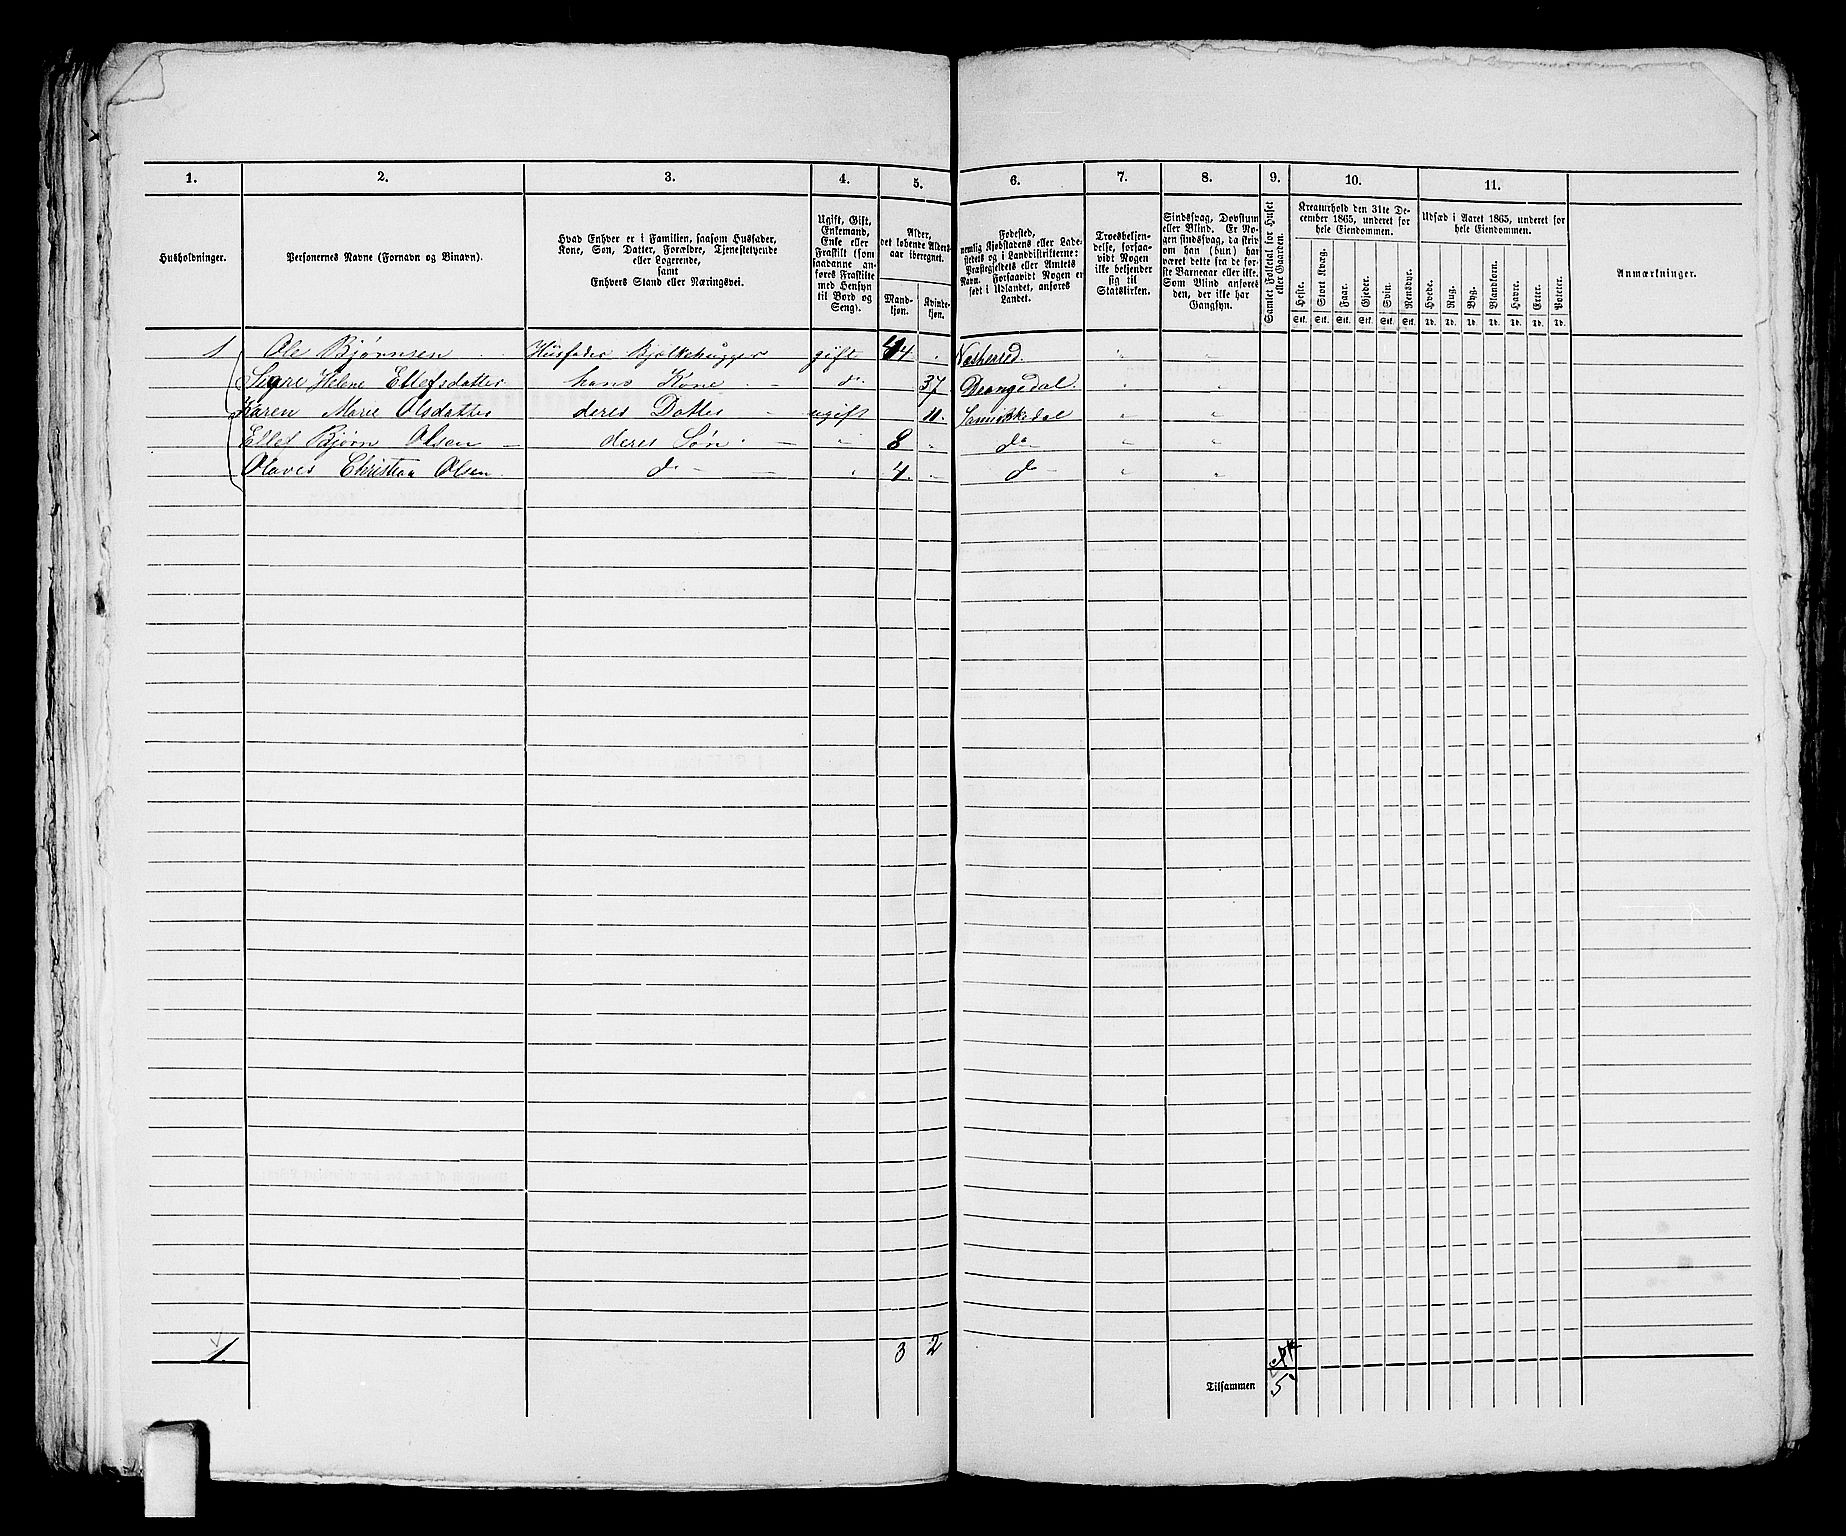 1. 2. 3. 4. 5. 6. 7. 8. 9. 10. 11.
Husholdninger.
Personernes Navne (Fornavn og Binavn).
Hvad Enhver er i Familien, saasom Husfader,
Kone, Søn, Datter, Forældre, Tjenestetyende
eller Logerende,
samt
Enhvers Stand eller Næringsvei.
Ugift, Gift,
Enkemand,
Enke eller
Fraskilt (som
saadanne an-
føres Fraskilte
med Hensyn
til Bord og
Seng).
Alder,
det løbende Alders-
aar iberegnet.
Mand-
kjøn.
Kvinde-
kjøn.
Fødested,
nemlig Kjøbstadens eller Lade-
stedets og i Landdistrikterne:
Præstegjeldets eller Amtets
Navn. Forsaavidt Nogen er
født i Udlandet, anføres
Landet.
Troesbekjen-
delse, forsaa-
vidt Nogen
ikke bekjender
sig til
Statskirken.
Sindssvag, Døvstum
eller Blind. Er No-
gen sindssvag, da skri-
ves om han (hun) har
været dette fra de før-
ste Barneaar eller ikke.
Som Blind anføres
den, der ikke har
Gangsyn.
Samlet Folketal for Huset
eller Gaarden.
Kreaturhold den 31te De-
cember 1865, underet for
hele Eiendommen.
Heste. Stort Kvæg. Faar. Gjeder. Svin. Rensdyr.
Stk. Stk. Stk. Stk. Stk. Stk.
Udsæd i Aaret 1865, underet for
hele Eiendommen.
Hvede. Rug. Byg. Blandkorn. Havre. Erter. Poteter.
Td. Td. Td. Td. Td. Td. Td.
Anmærkninger.
1 Ole Bjørnsen Husfader Bjelkehugger gift 44 " " "
Helene Ellefsdatter hans Kone do 37 Drangedal " "
Karen Marie Olsdatter deres Datter ugift 11 Sannikedal " "
Ellef Bjørn Olsen deres Søn " 8 " do " "
Olaves Christian Olsen do " 4 " do " "
1 3 2
Tilsammen 5